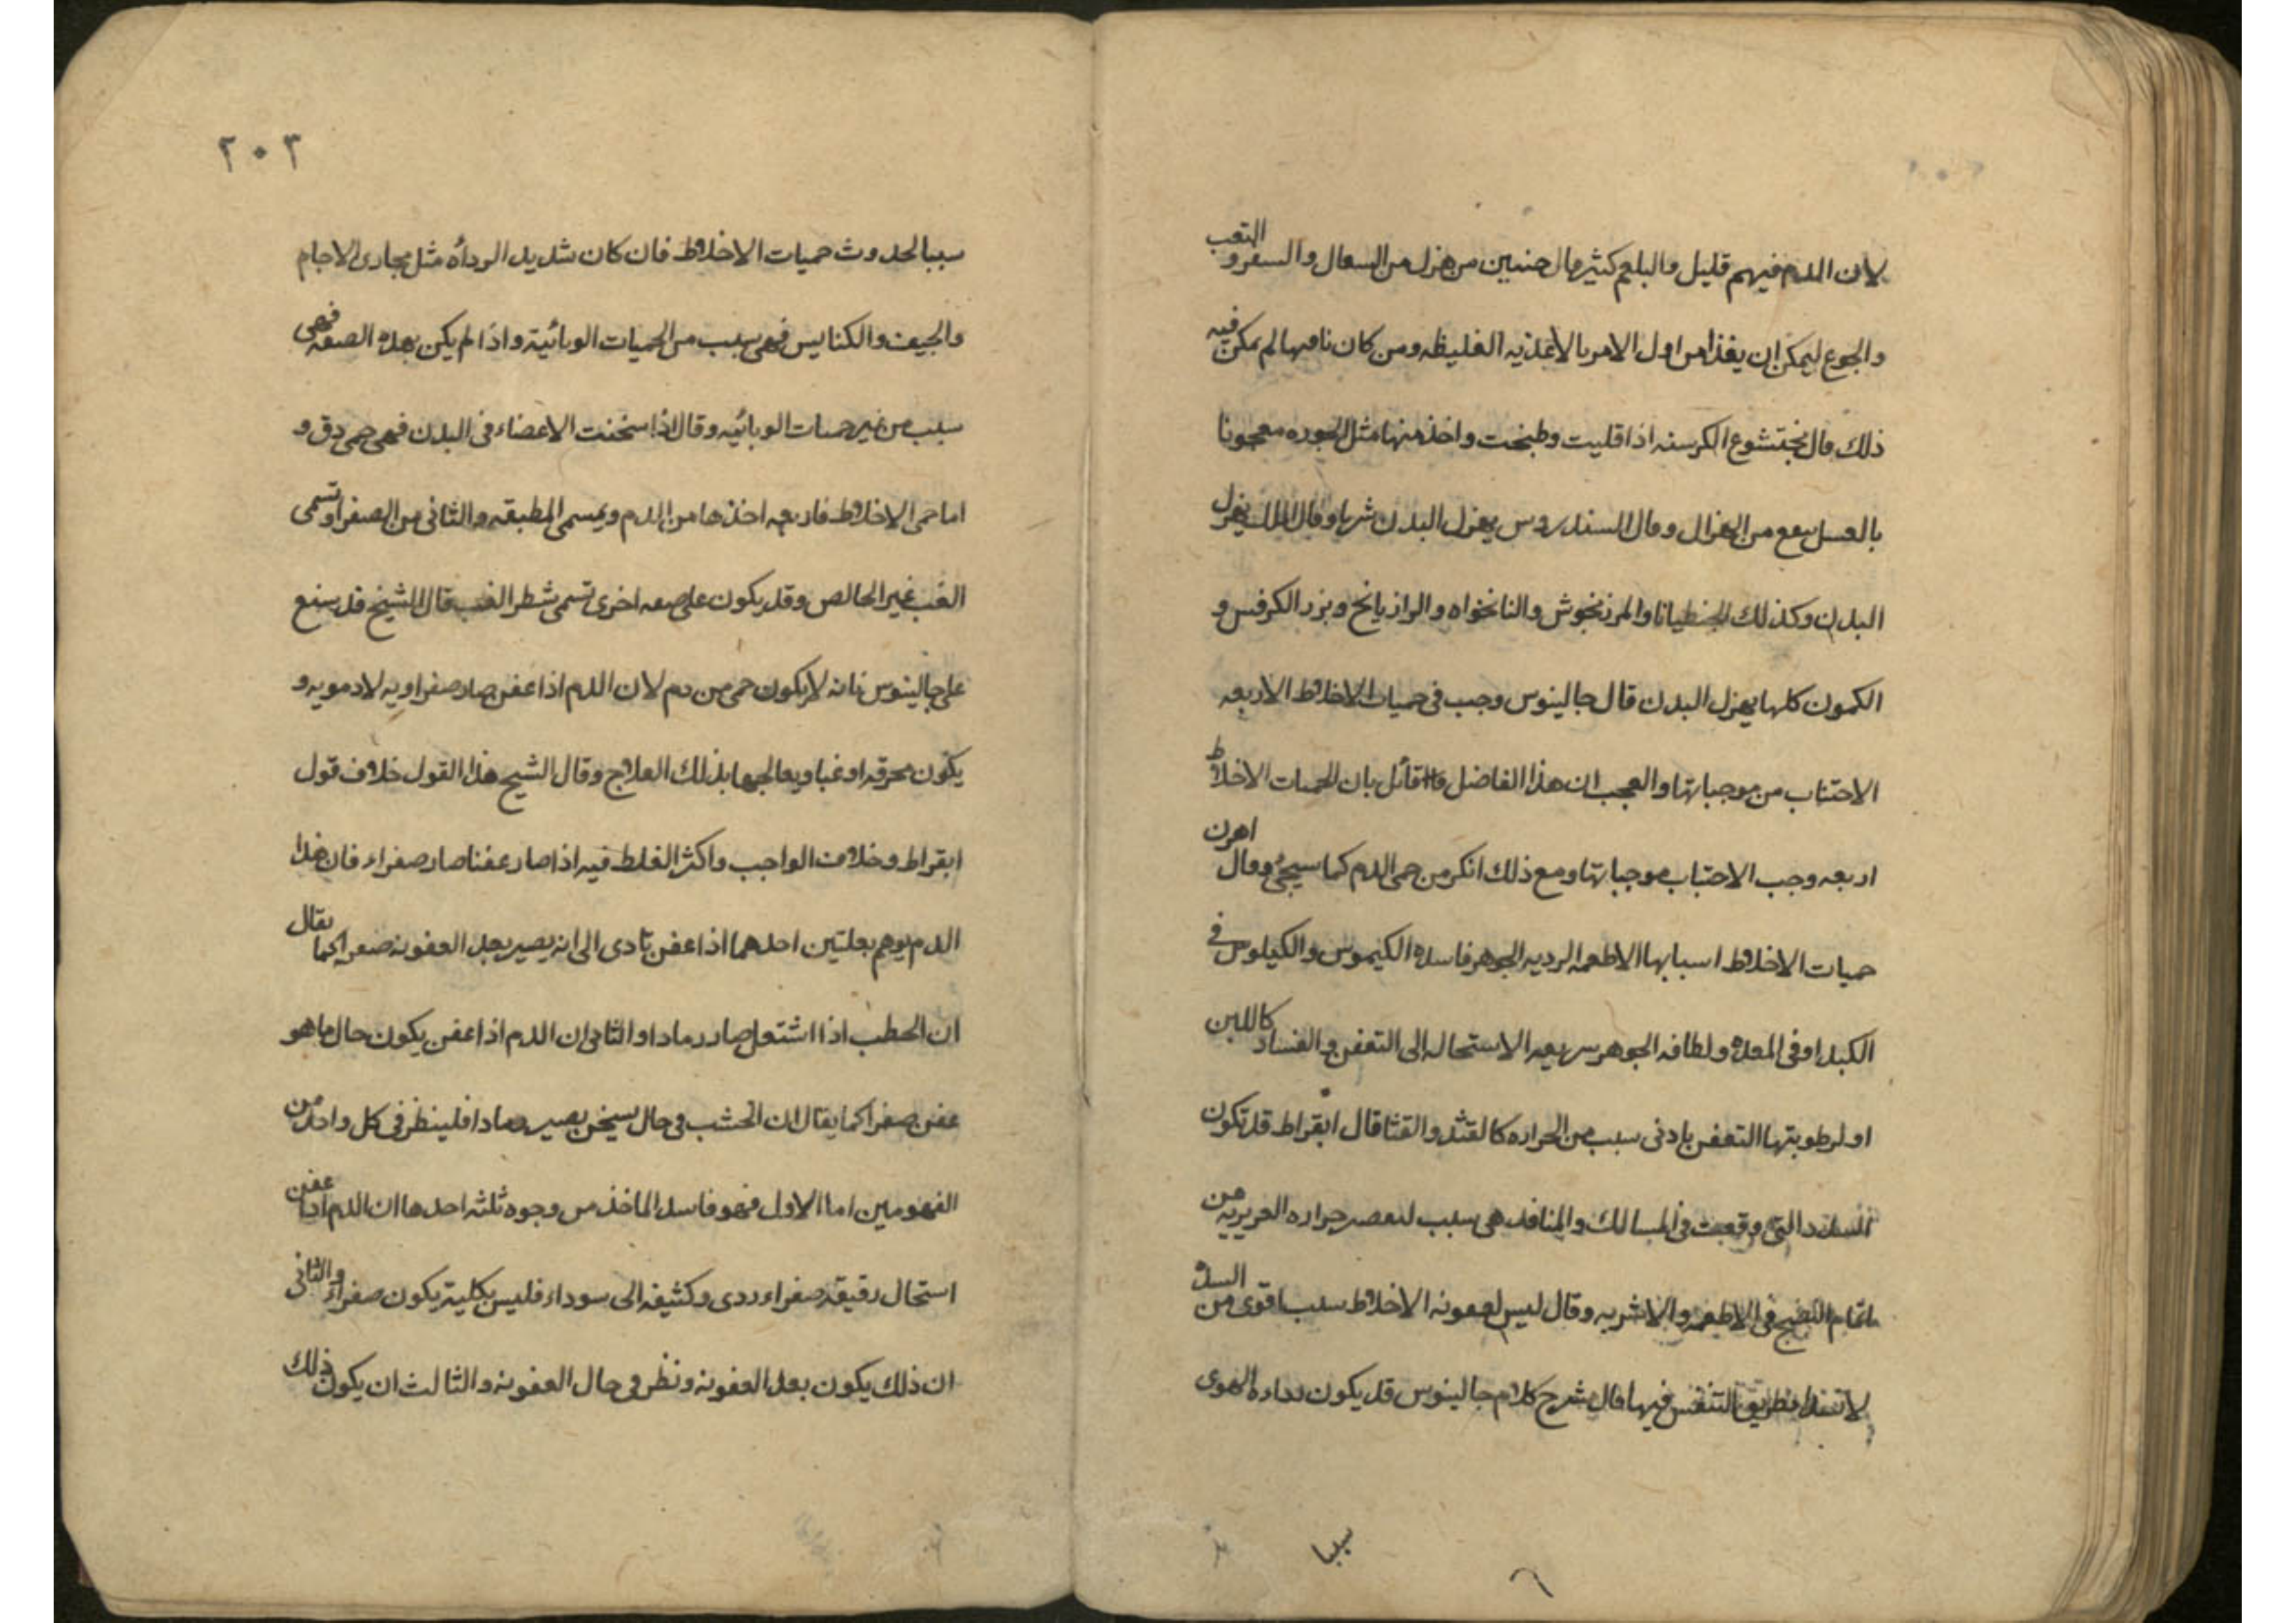 لان الدم فيهم قليل والبلغم كثير قال حنين من هزل من السعال والسفر والتعب
والجوع ليمكن ان يغذا من اول الامر بالاغذيه الغليظه ومن كان نامها لم يمكن فيه
ذلك قال بختشوع الكرسنه اذا قليت وطبخت واخذ منها مثل الجوزه معجونا
بالعسل ينفع من الهزال وقال السندروس يهزل البدن شربا وقال اللك يهزل
البدن وكذلك الجنطيانا والمرزنجوش والنانخواه والرازيانج وبزر الكرفس و
الكمون كلها يهزل البدن قال جالينوس وجب في حميات الاخلاط الاربعه
الاحتناب من موجباتها والعجب ان هذا الفاضل قائل بان الحميات الاخلاط
اربعه وجب الاحتباب موجباتها ومع ذلك انكر من حمى الدم كما سيجئ وقال اهرن
حميات الاخلاط اسبابها الاطعمه الرديه الجوهر فاسده الكيموس والكيلوس في
الكبد او في المعده ولطافه الجوهر سريعه الاستحاله الى التعفن والفساد كاللبن
او لرطوبتها التعفن بادنى سبب من الحراره كالقثد والقثا قال ابقراط قد تكون
السدد التي وقعت في المسالك والمنافذ هي سبب حراره الغريزيه من
النضج في الاطعمه والاشربه وقال ليس لعفونه الاخلاط سبب اقوى من السده
لا بطريق التنفس فيها قال شرح كلام جالينوس قد يكون الهوى
سببا
٢٠٣
سببا لحدوث حميات الاخلاط فان كان شديد الرداه مثل مجارى الاجام
والجيف والكنايس فهي سبب من الحميات الوبائية واذا لم يكن بهذه الصفه فهى
سبب من غير حميات الوبائيه وقال اذا سخنت الاعضاء فى البدن فهى حمى دق و
اما حمى الاخلاط فاربعه احذها من الدم ويسمى المطبقه والثانى من الصفرا وتسمى
الغب غير الخالص وقد يكون على صفه اخرى تسمى شطر الغب قال الشيخ قد سنع
على جالينوس بانه لا يكون حمى من دم لان الدم اذا عفن صار صفراويه لا دمويه و
يكون محرقه او غبا ويعالجها بذلك العلاج وقال الشيخ هذا القول خلاف قول
ابقراط وخلاف الواجب واكثر الغلط فيه اذا صار عفنا صار صفراء فان هذا
الدم يوهم بعلتين احدهما اذا عفن تادى الى انه يصير بعد العفونه صفرا كما يقال
ان الحطب اذا اشتعل صار رمادا والثانى ان الدم اذا عفن يكون حال ما هو
عفن صفرا كما يقال ان الخشب فى حال سيخن يصير رمادا فلينظر فى كل واحد من
الفهومين اما الاول فهو فاسد الماخذ من وجوه ثلثه احدها ان الدم اذا عفن
استحال رقيقه صفراء ردى وكثيفه الى سوداء فليس بكليته يكون صفراء والثانى
ان ذلك يكون بعد العفونه ونظر فى حال العفونه والثالث ان يكون ذلك